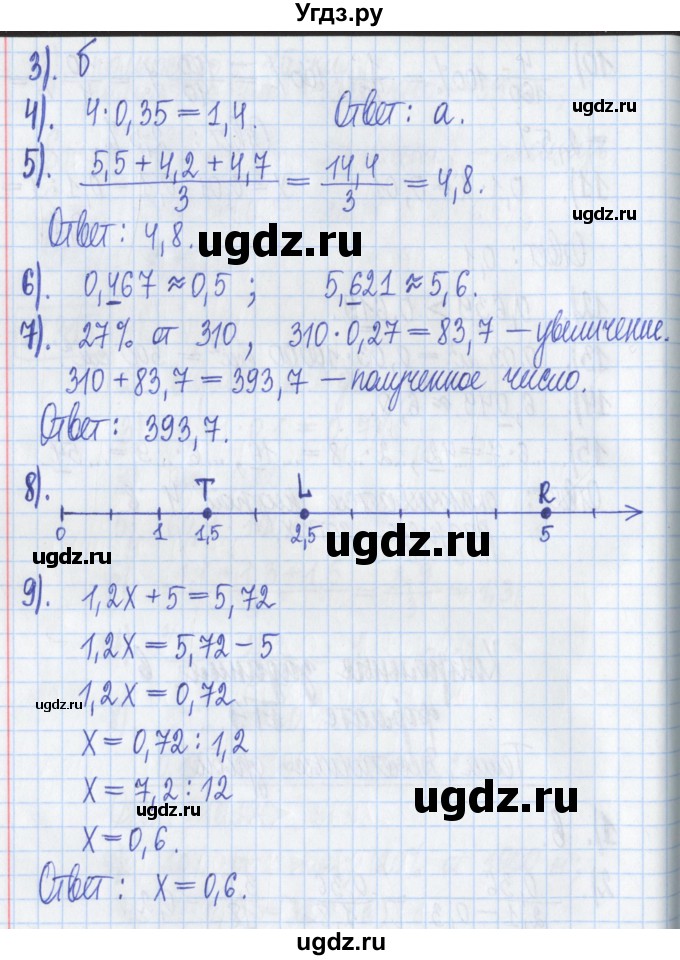 Угдз.ру
3). б
4). 4·0,35=1,4. Ответ: а.
5). (5,5+4,2+4,7)/3 = 14,4/3 = 4,8.
Ответ: 4,8.
ugdz.ru
6). 0,467≈0,5; 5,621≈5,6.
7). 27% от 310, 310·0,27=83,7 – увеличение.
310+83,7=393,7 – полученное число.
Ответ: 393,7.
8). T L R
0 1 1,5 2,5 5
ugdz.ru ugdz.ru
9). 1,2x+5=5,72
1,2x=5,72-5
1,2x=0,72
ugdz.ru
x=0,72:1,2
x=7,2:12
ugdz.ru
x=0,6.
Ответ: x=0,6.
ugdz.ru